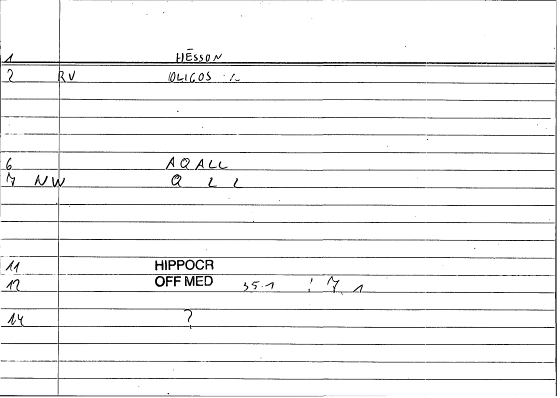 1 HĒSSON
2 RV OLIGOS
6 AQALL
7 NW Q L L
11 HIPPOCR
12 OFF MED 35.1 ! 7, 1
14 ?